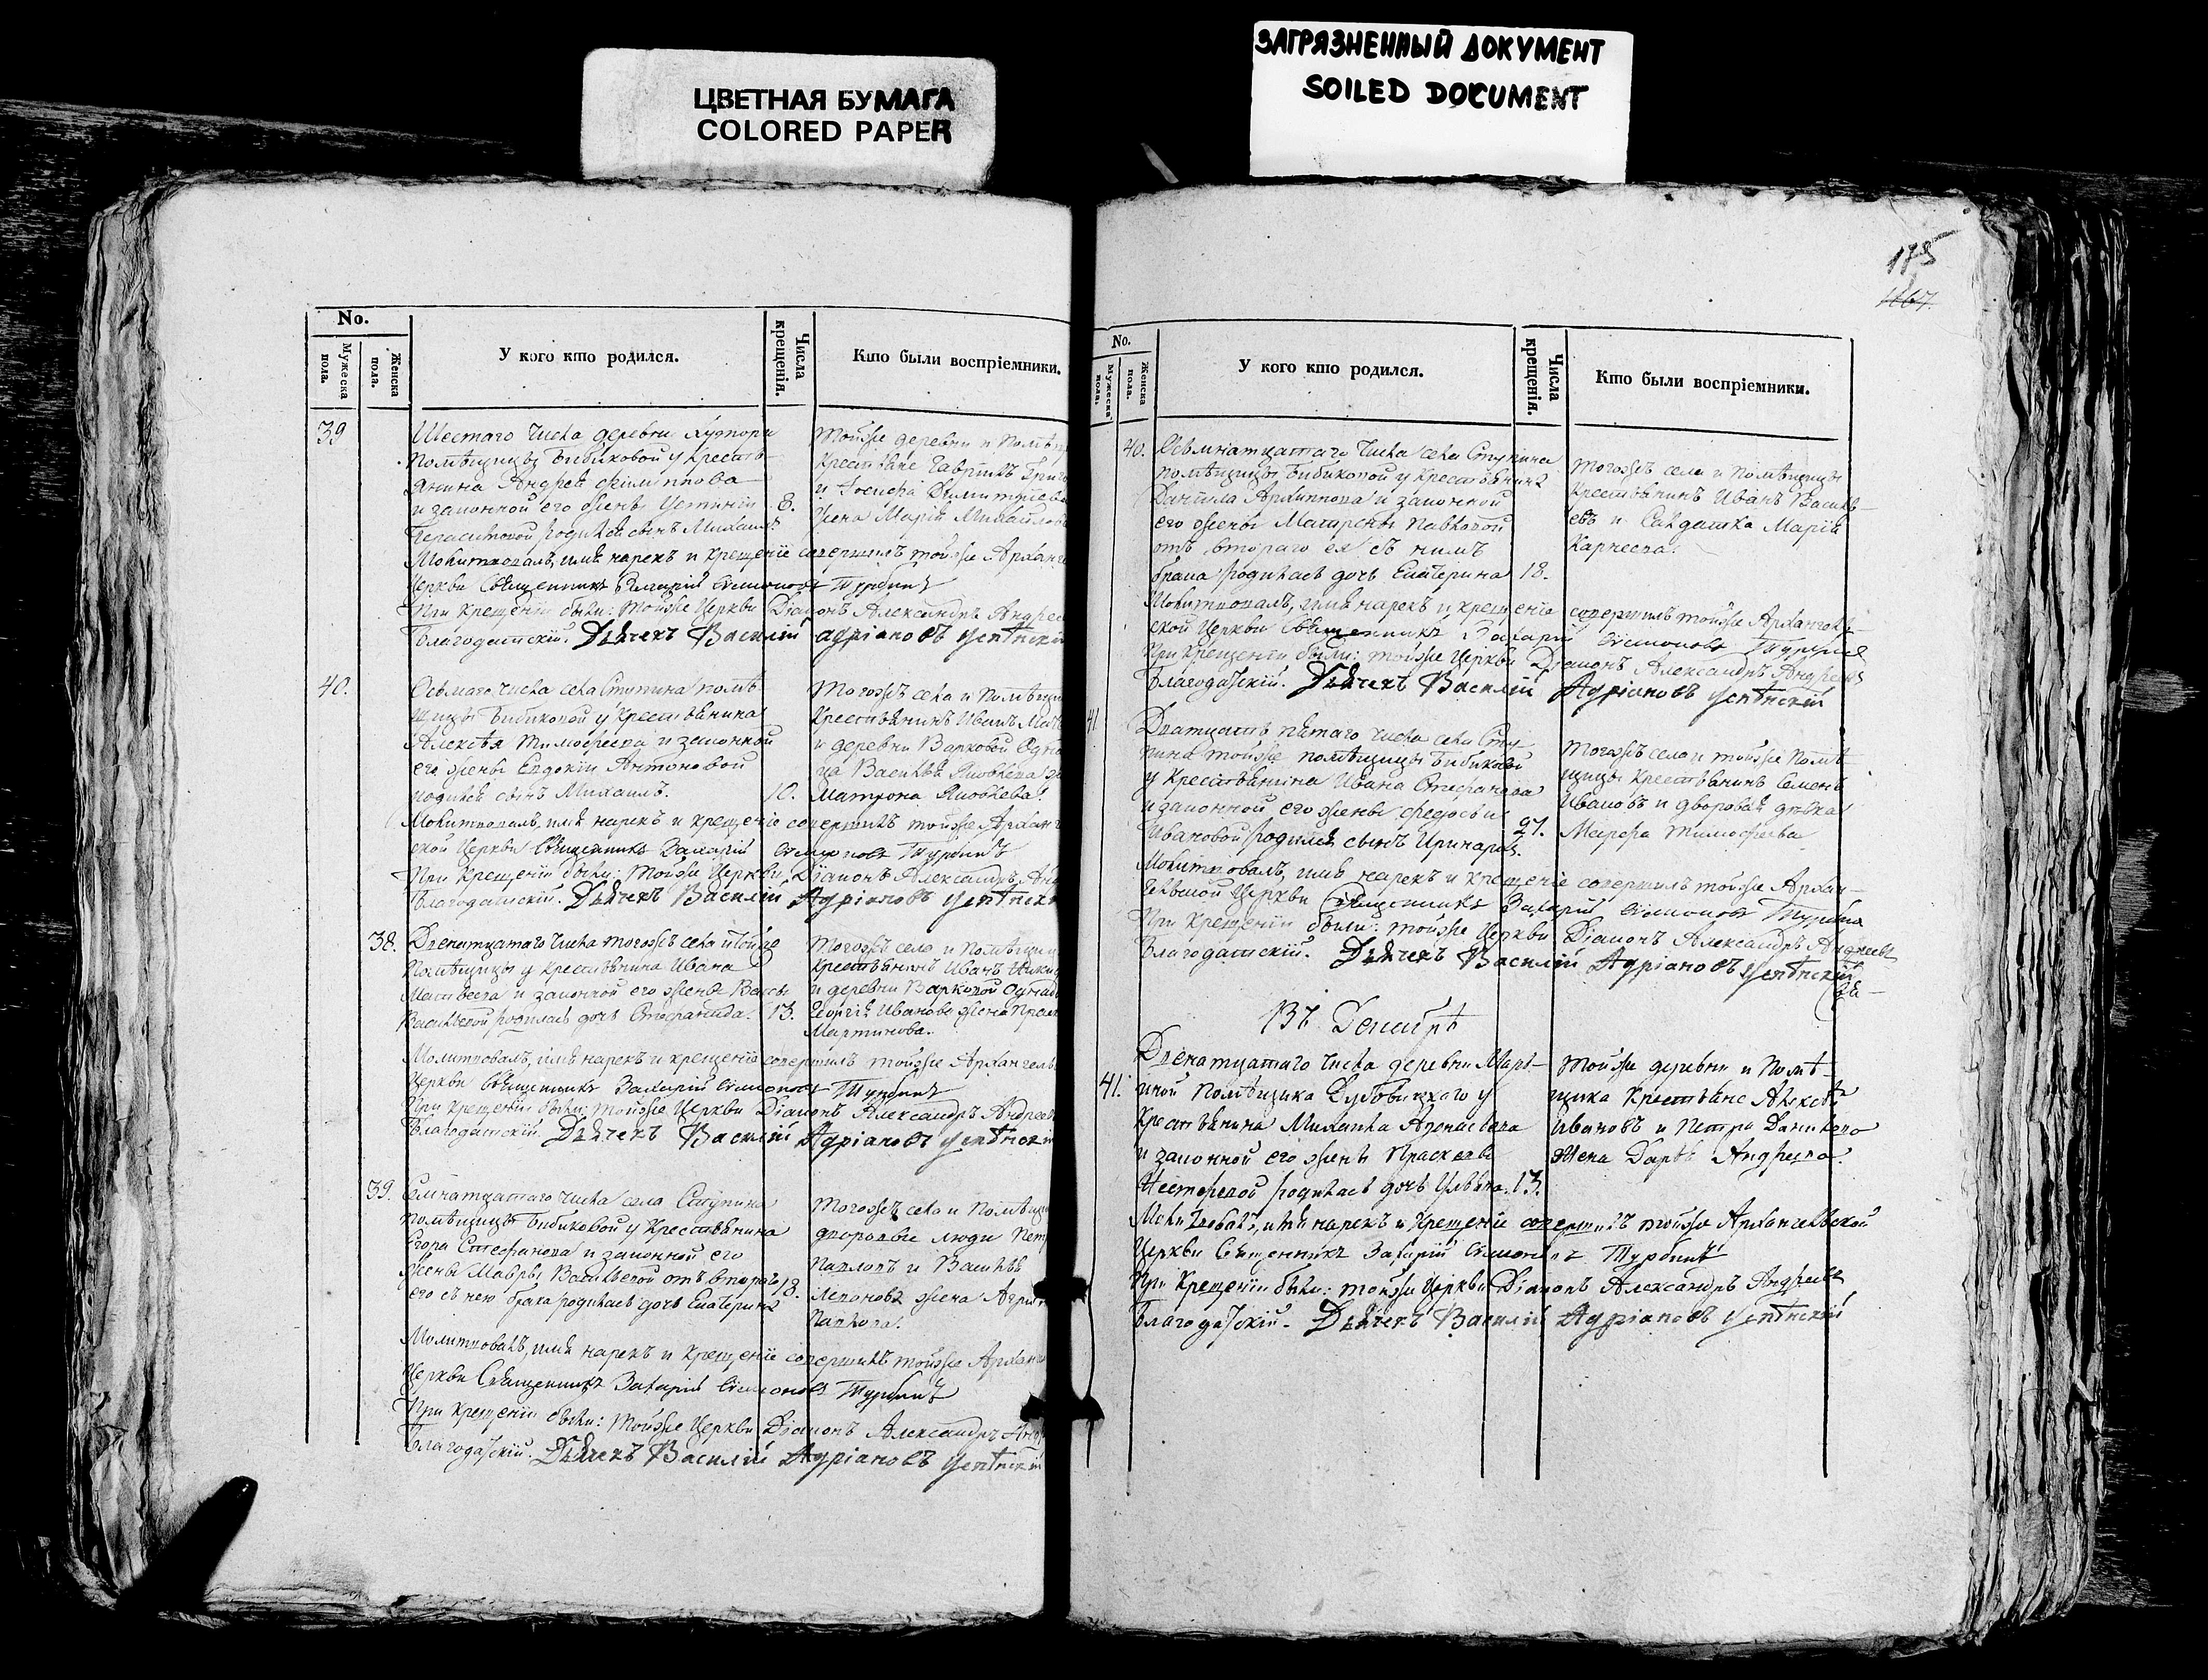 ЦВЕТНАЯ БУМАГА
COLORED PAPER
ЗАГРЯЗНЕННЫЙ ДОКУМЕНТ
SOILED DOCUMENT
175
No.
Мужеска пола.
Женска пола.
У кого кто родился.
Числа крещенія.
Кто были воспріемники.
39
Шестаго числа деревни
помѣщицы Бибиковой у крестья-
янина Андрея Филиппова
и законной его жены Устиніи
Герасимовой родился сынъ Михаилъ
8.
Тойже деревни и помѣ
крестьяне Гаврилъ Григо
и Іосифа Димитріева
жена Марія Михайлов
Молитвовалъ, имя нарекъ и крещеніе совершилъ тойже Арханге
церкви Священникъ Захарій Симоновъ Турбинъ
При крещеніи были: тойже церкви Діаконъ Александръ Андрее
Благодатскій. Дьячекъ Василій Адріановъ Успѣнскій
40.
Осьмаго числа села Ступина помѣ-
щицы Бибиковой у крестьянина
Алексѣя Тимофеева и законной
его жены Евдокіи Антоновой
родился сынъ Михаилъ.
10.
Тогожъ села и помѣщиц
крестьянинъ Иванъ Мат
и деревни Варковой Одно
ца Василья Яковлева
Матрона Яковлева.
Молитвовалъ, имя нарекъ и крещеніе совершилъ тойже Арханг
ской церкви Священникъ Захарій Симоновъ Турбинъ
При крещеніи были: тойже церкви Діаконъ Александръ Анд
Благодатскій. Дьячекъ Василій Адріановъ Успѣнск
38.
Двенатцатаго числа тогожъ села и тойже
помѣщицы у крестьянина Ивана
Матвеева и законной его жены Вассы
Васильевой родилась дочь Стефанида.
13.
Тогожъ села и помѣщиц
крестьянинъ Иванъ
и деревни Варковой Однод
Георгія Иванова жена Праск
Мартинова.
Молитвовалъ, имя нарекъ и крещеніе совершилъ тойже Архангель
церкви Священникъ Захарій Симоновъ Турбинъ
При крещеніи были: тойже церкви Діаконъ Александръ Андрее
Благодатскій. Дьячекъ Василій Адріановъ Успѣнскі
39.
Семнатцатаго числа села Ступина
помѣщицы Бибиковой у крестьянина
Егора Стефанова и законной его
жены Мавры Васильевой отъ втораго
его съ нею брака родилась дочь Екатерина
18.
Тогожъ села и помѣщиц
дворовые люди Петр
Павловъ и Василья
жена Агри
Павлова.
Молитвовалъ, имя нарекъ и крещеніе совершилъ тойже Арханг
церкви Священникъ Захарій Симоновъ Турбинъ
При крещеніи были: тойже церкви Діаконъ Александръ Андр
Благодатскій. Дьячекъ Василій Адріановъ Успѣнскій
No.
Мужеска пола.
Женска пола.
У кого кто родился.
Числа крещенія.
Кто были воспріемники.
40.
Осьмнатцатаго числа села Ступина
помѣщицы Бибиковой у крестьянина
Данiила Архиппова и законной
его жены Матрены Павловой
отъ втораго ея съ нимъ
брака родилась дочь Екатерина
18.
Тогожъ села и помѣщицы
крестьянинъ Иванъ Василь-
евъ и Солдатка Марія
Карнеева.
Молитвовалъ, имя нарекъ и крещеніе совершилъ тойже Архангель-
ской церкви Священникъ Захарій Симоновъ Турбинъ
При крещеніи были: тойже церкви Діаконъ Александръ Андреевъ
Благодатскій. Дьячекъ Василій Адріановъ Успѣнскій
41
Дватцать пятаго числа села Сту-
пина тойже помѣщицы Бибиковой
у крестьянина Ивана Стефанова
и законной его жены Федосьи
Ивановой родился сынъ Иринархъ.
27.
Тогожъ села и тойже помѣ-
щицы крестьянинъ Семенъ
Ивановъ и дворовая дѣвка
Марфа Тимофеева
Молитвовалъ, имя нарекъ и крещеніе совершилъ тойже Архан-
гельской церкви Священникъ Захарій Симоновъ Турбинъ
При крещеніи были: тойже церкви Діаконъ Александръ Андреевъ
Благодатскій. Дьячекъ Василій Адріановъ Успѣнскій
Въ Декабрѣ
41.
Двенатцатаго числа деревни Марь-
иной помѣщика Дубовицкаго у
крестьянина Михаила Афонасьева
и законной его жены Прасковьи
Нестеровой родилась дочь Ульяна.
13.
Тойже деревни и помѣ-
щика крестьяне Алексѣй
Ивановъ и Петра Данилова
жена Дарья Андреева.
Молитвовалъ, имя нарекъ и крещеніе совершилъ тойже Архангельской
церкви Священникъ Захарій Симоновъ Турбинъ
При крещеніи были: тойже церкви Діаконъ Александръ Андреевъ
Благодатскій. Дьячекъ Василій Адріановъ Успѣнскій